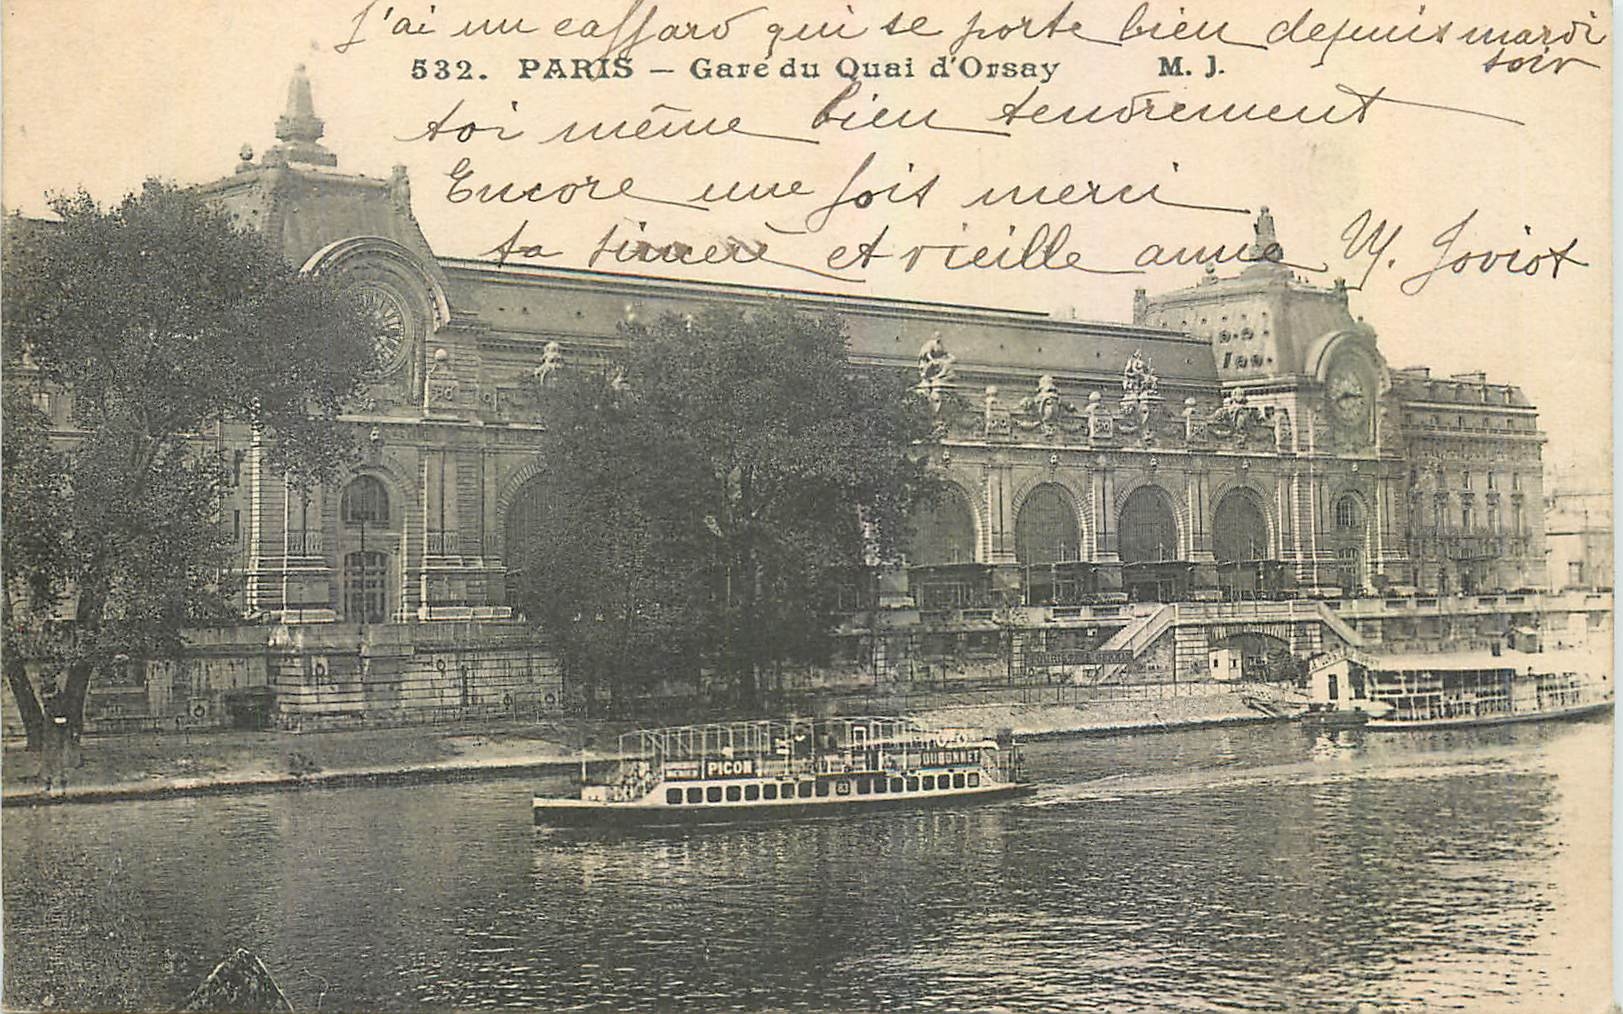 J'ai un caffard qui se porte bien depuis mardi
soir
532. PARIS — Gare du Quai d'Orsay M. J.
toi même bien tendrement
Encore une fois merci
ta sincère et vieille amie M. Joviot
PICON
DUBONNET
83